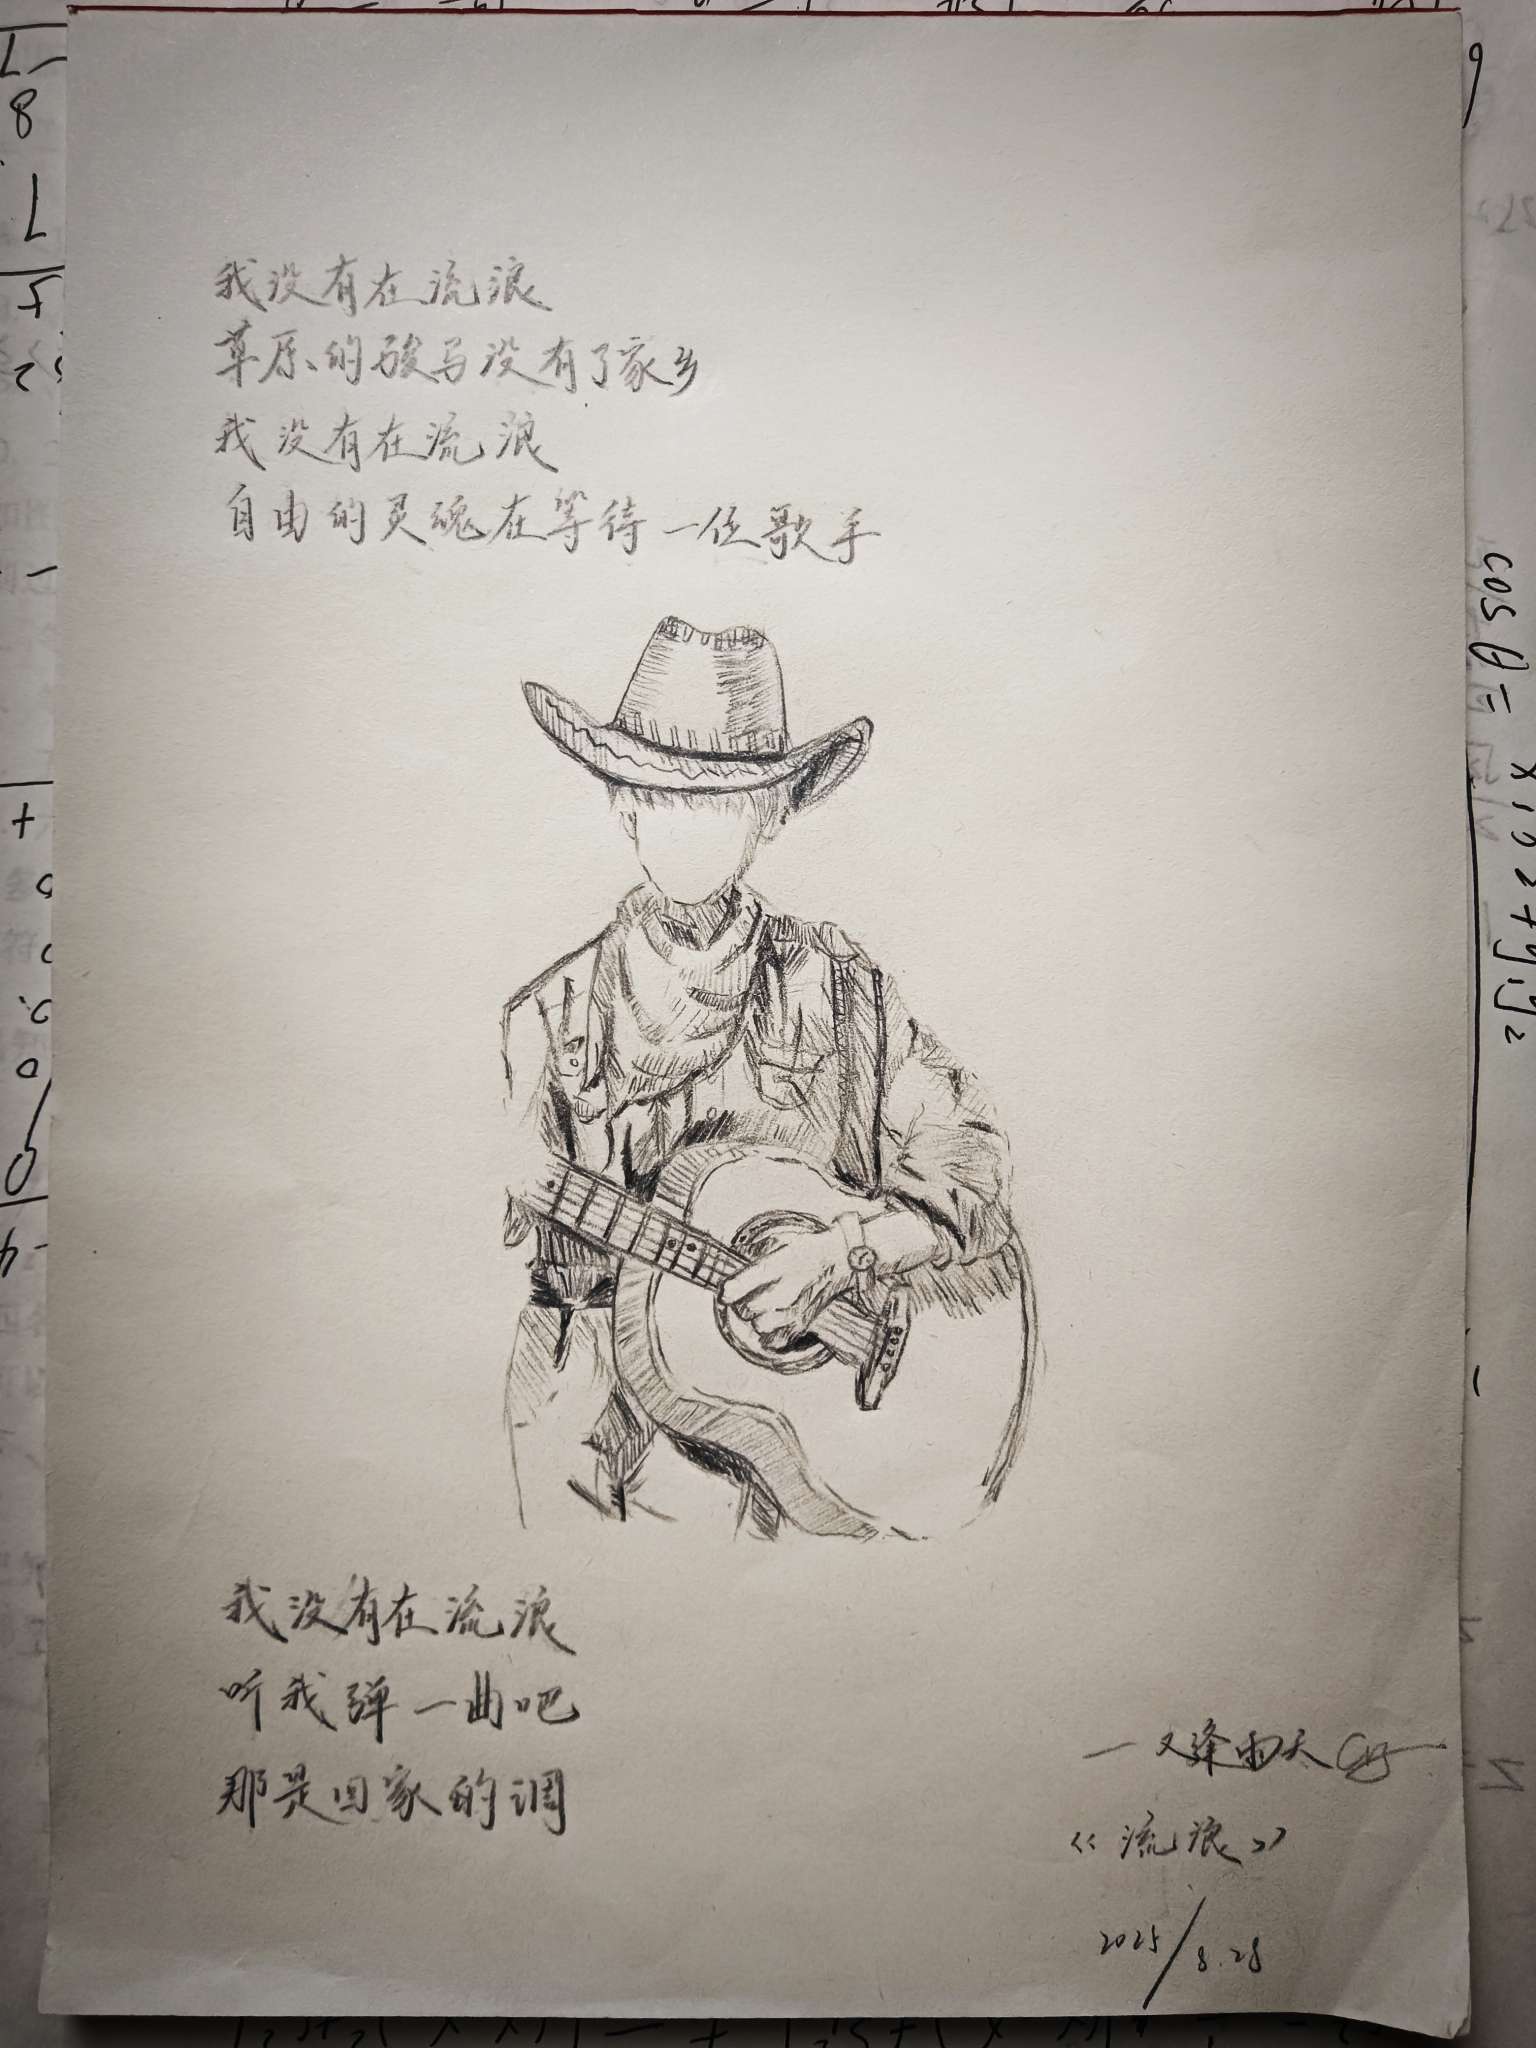 我没有在流浪
草原的骏马没有了家乡
我没有在流浪
自由的灵魂在等待一位歌手
我没有在流浪
听我弹一曲吧
那是回家的调
一又逢雨天
《流浪》
2025/8.28
cosθ= x₁x₂+y₁y₂